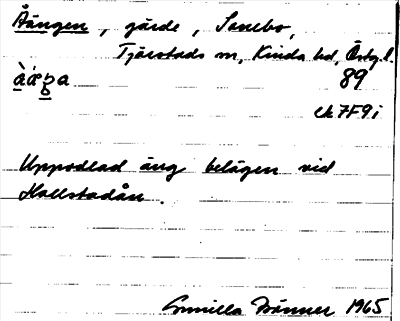 Åängen, gärde, Sonebo,
Tjärstads sn, Kinda hd, Östg. l.
89
ek 7F9i
Uppodlad äng belägen vid
Hallstadån.
Gunilla Bänner 1965